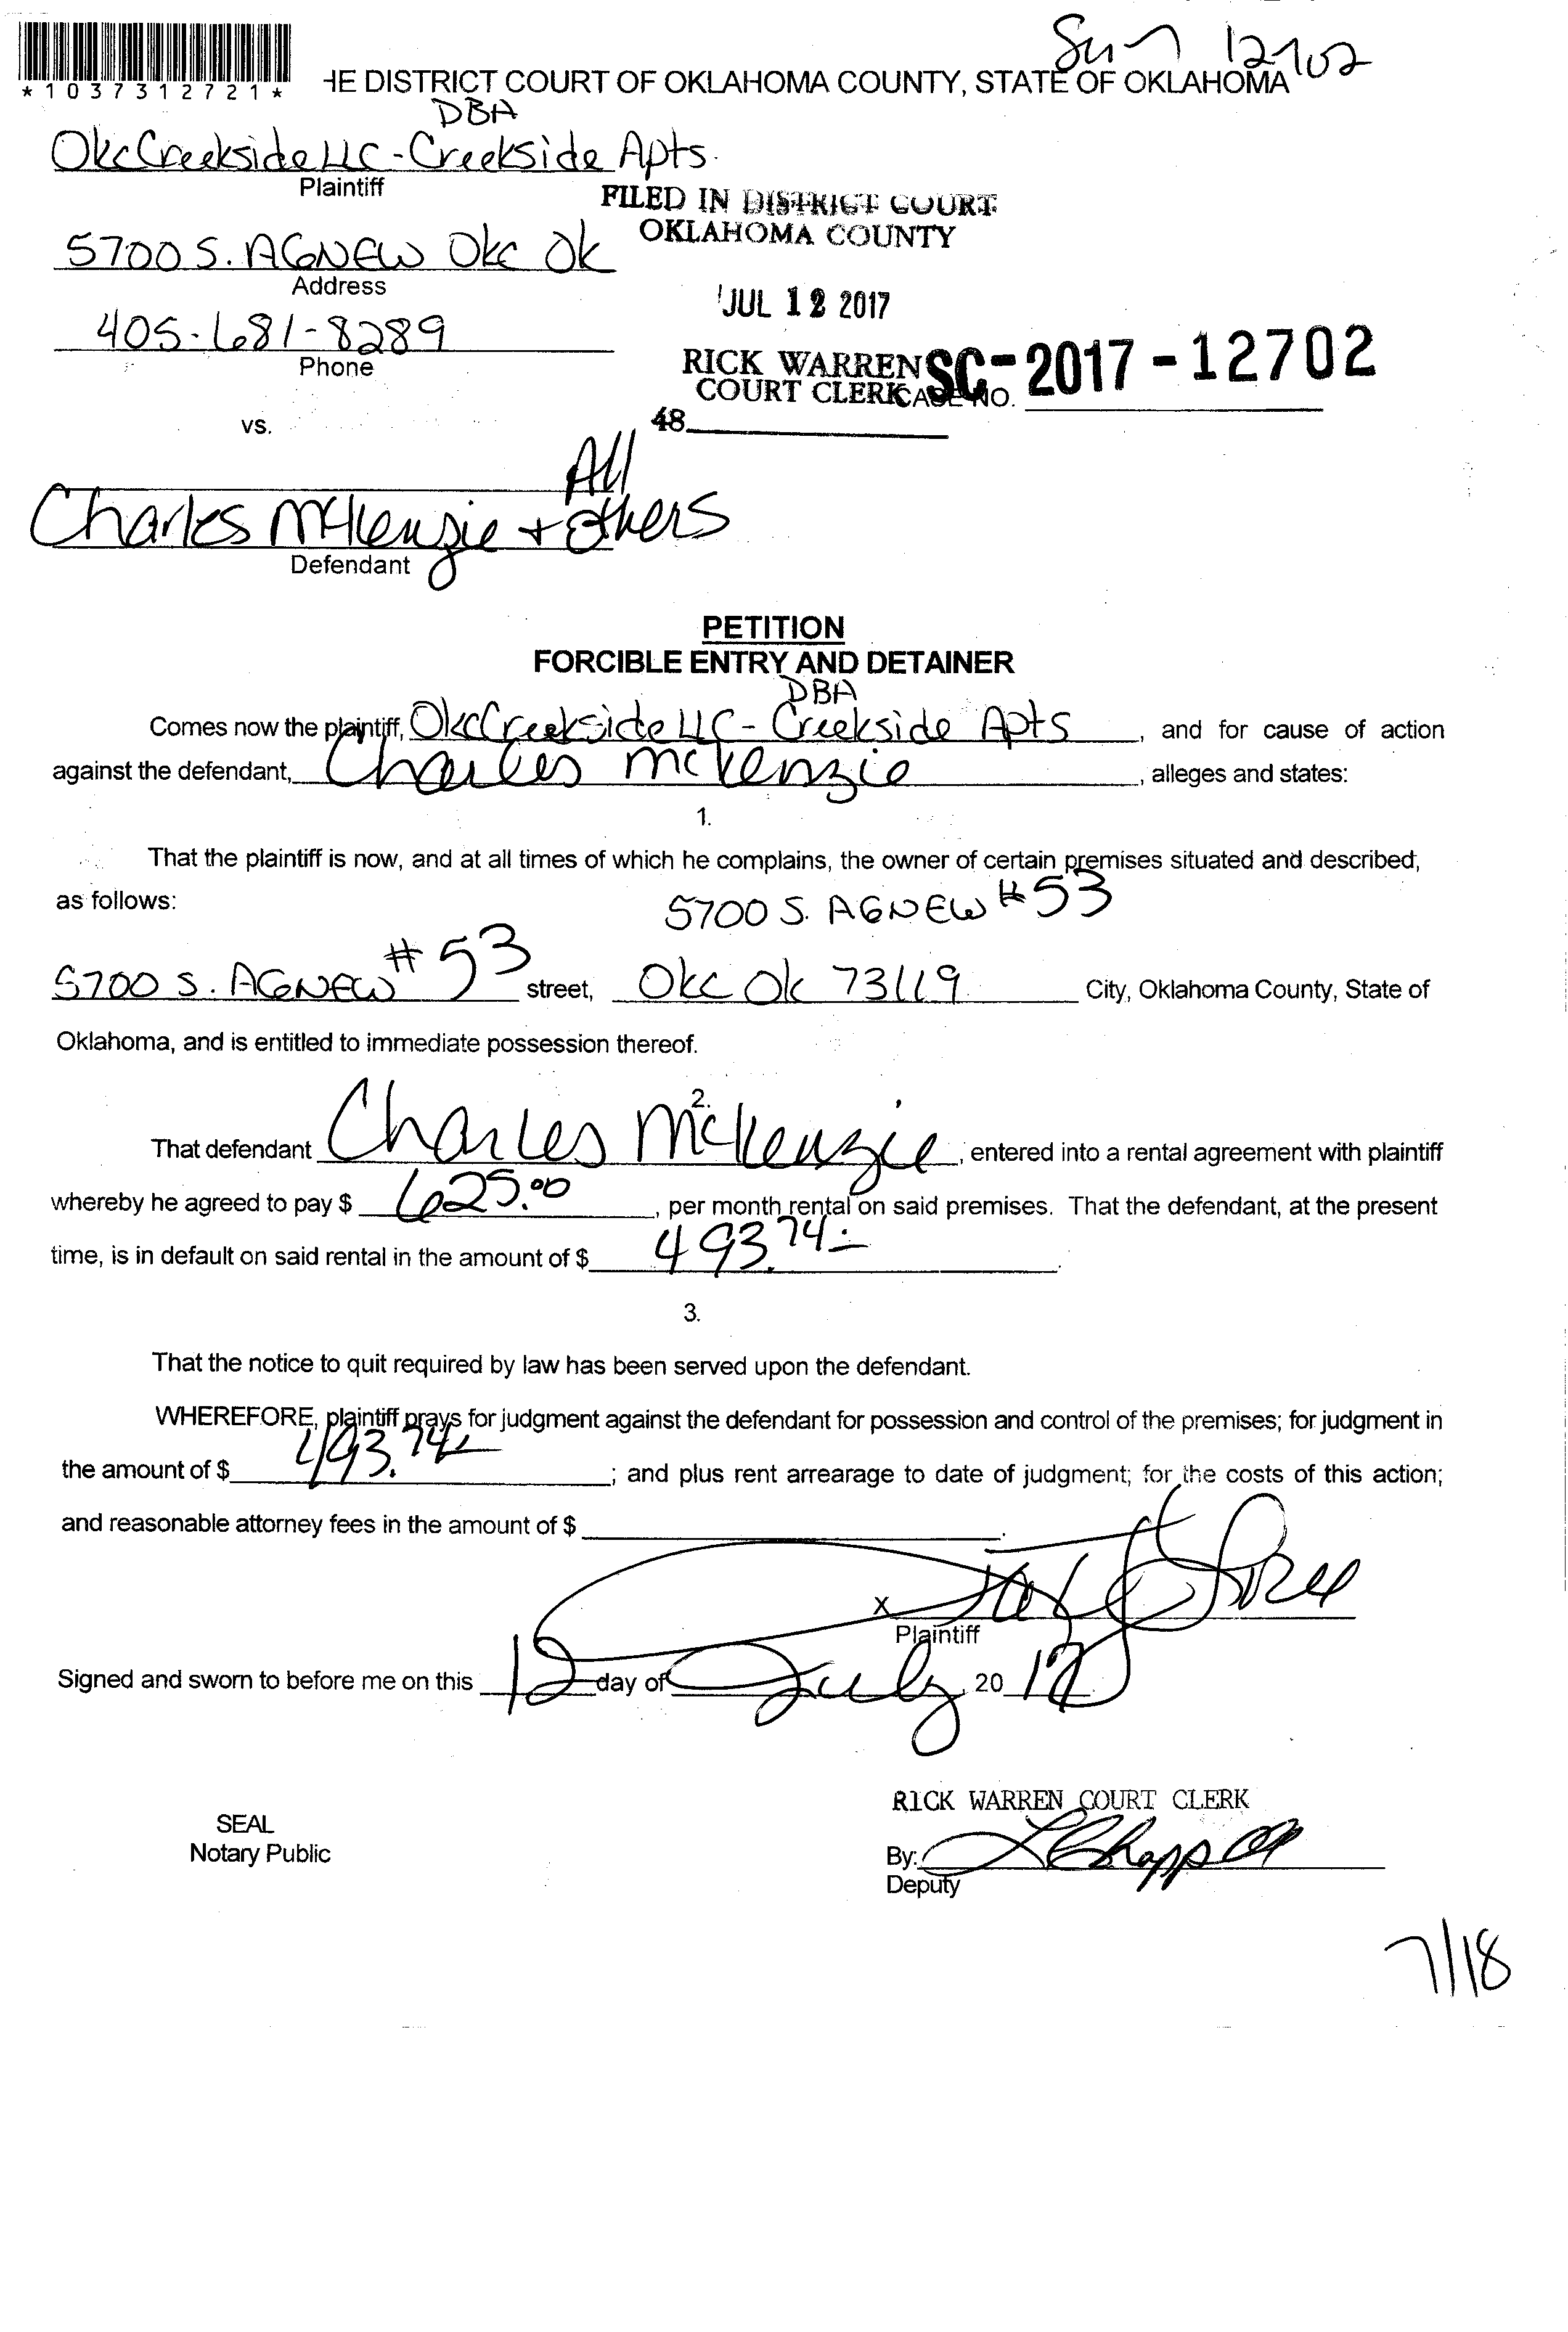 Sm 12702
*1037312721*
HE DISTRICT COURT OF OKLAHOMA COUNTY, STATE OF OKLAHOMA
DBA
Okc Creekside LLC - Creekside Apts.
Plaintiff
FILED IN DISTRICT COURT
OKLAHOMA COUNTY
5700 S. AGNEW Okc Ok
Address
JUL 12 2017
405-681-8289
Phone
RICK WARREN
COURT CLERK
CASE NO. SC-2017-12702
48
vs.
All
Charles McKenzie + others
Defendant
PETITION
FORCIBLE ENTRY AND DETAINER
DBA
Comes now the plaintiff, Okc Creekside LLC - Creekside Apts, and for cause of action
against the defendant, Charles McKenzie, alleges and states:
1.
That the plaintiff is now, and at all times of which he complains, the owner of certain premises situated and described,
as follows:
5700 S. AGNEW #53
5700 S. AGNEW #53 street, Okc Ok 73119 City, Oklahoma County, State of
Oklahoma, and is entitled to immediate possession thereof.
2.
That defendant Charles McKenzie, entered into a rental agreement with plaintiff
whereby he agreed to pay $ 625.00, per month rental on said premises. That the defendant, at the present
time, is in default on said rental in the amount of $ 493.74.
3.
That the notice to quit required by law has been served upon the defendant.
WHEREFORE, plaintiff prays for judgment against the defendant for possession and control of the premises; for judgment in
the amount of $ 493.74; and plus rent arrearage to date of judgment; for the costs of this action;
and reasonable attorney fees in the amount of $ .
X
Plaintiff
Signed and sworn to before me on this 12 day of July, 2017
RICK WARREN COURT CLERK
SEAL
Notary Public
By:
Deputy
7/18